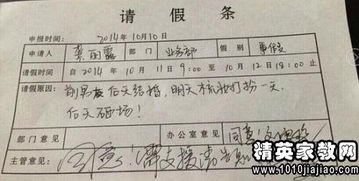 请假条
申报时间： 2014年10月10日
申请人 龚丽露 部门 业务部 假别 事假
请假时间 自2014年10月11日9:00至10月12日18:00止
请假原因： 前男友后天结婚，明天梳妆打扮一天，
后天砸场！
部门意见 办公室意见 同意
主管意见 同意！需支援请告知
精英家教网
www.1010jiajiao.com